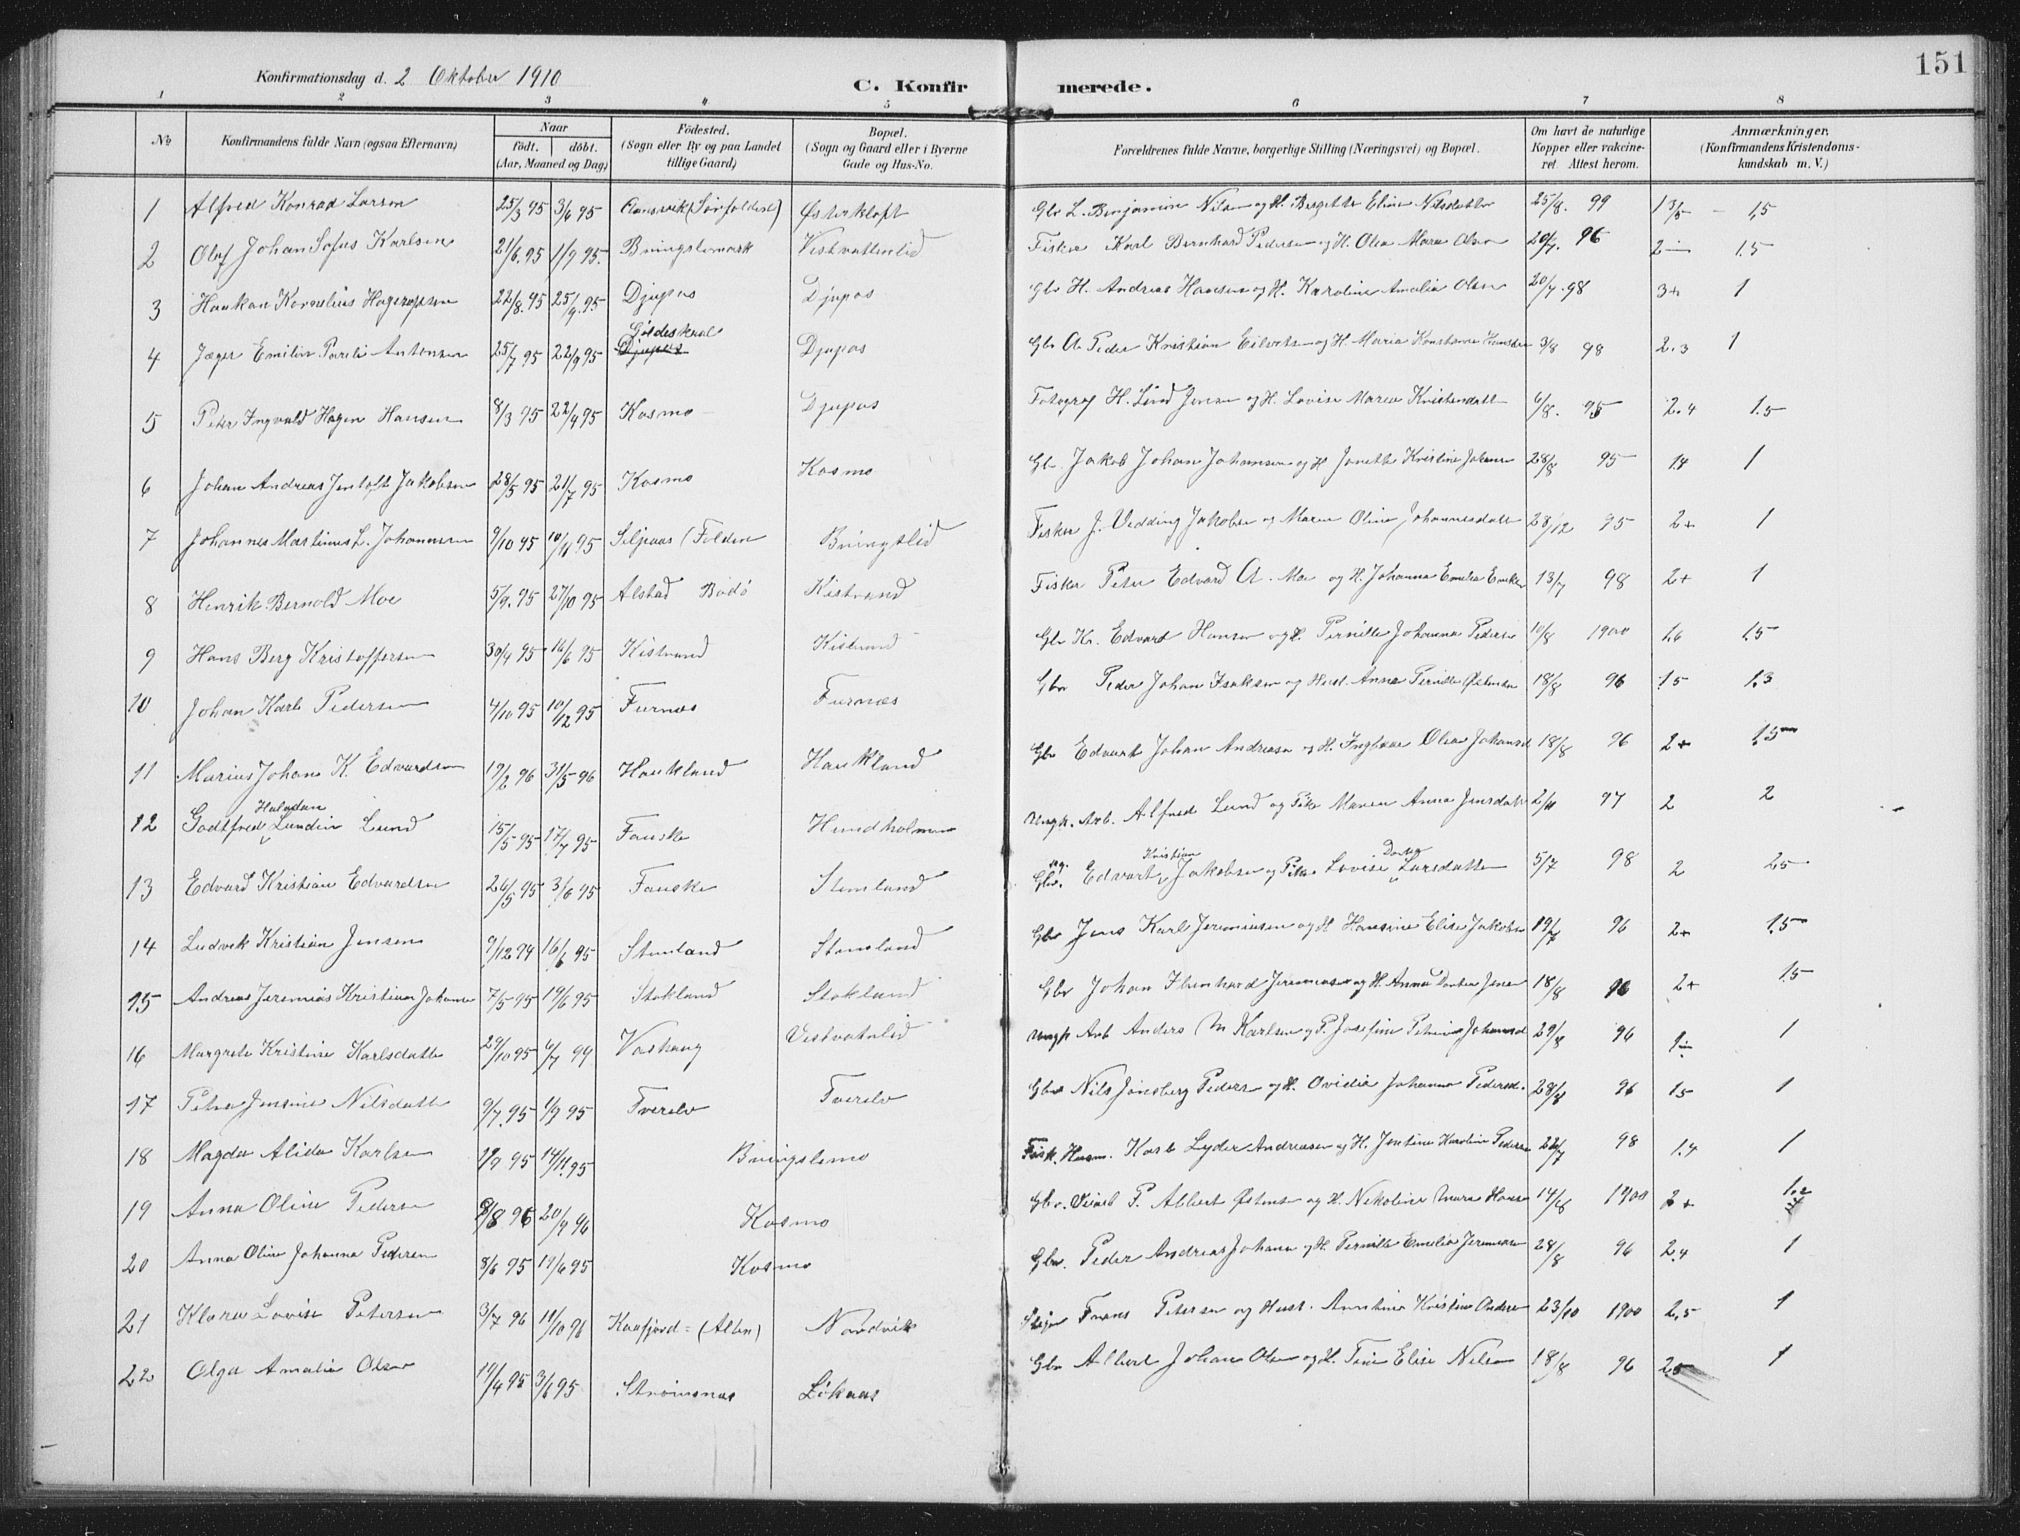 151
Konfirmationsdag d. 2 Oktober 1910
C. Konfirmerede.
1 2 3 4 5 6 7 8
No
Konfirmandens fulde Navn (ogsaa Efternavn)
Naar
födt. döbt.
(Aar, Maaned og Dag)
Födested.
(Sogn eller By og paa Landet
tillige Gaard)
Bopæl.
(Sogn og Gaard eller i Byerne
Gade og Hus-No.
Forældrenes fulde Navne, borgerlige Stilling (Næringsvei) og Bopæl.
Om havt de naturlige
Kopper eller vakcine-
ret Attest herom.
Anmærkninger.
(Konfirmandens Kristendoms-
kundskab m. V.)
1 Alfred Konrad Larsen 25/3 95 3/6 95 (Sørfolden) Østerkloft Gbr L. Benjamin Nilsen og H. Bergitte Eline Nilsdatter 25/8. 99 1 3/5 - 1,5
2 Olaf Johan Sofus Karlsen 21/6.95 1/9 95. Bringslimark Vestvatlinlid Fisker Karl Bernhard Pedersen og H. Olea Maria Olsen 20/7. 96 2- 1.5
3 Haakan Kornelius Hagerupsen 22/8.95 25/9.95 Djupos Djupos Gbr H. Andreas Hansen og H. Karoline Amalia Olsen 20/7.98 3+ 1
Gildeskaal
4 Jæger Emilin Pareli Antonsen 25/7 95 22/9 95 Djupos Djupos Gbr A. Peder Kristian Eilertsen og H. Maria Konstanse 3/8 98 2.3 1
5 Peter Ingvald Hagen Hansen 8/3 95 22/4 95 Kosmo Djupos Fotograf H. Lind Jensen og H. Lovise Maria Kristendatt 6/8. 95 2.4 1.5
6 Johan Andreas Jentoft Jakobsen 28/5 95 21/7 95 Kosmo Kosmo Gbr. Jakob Johan Johansen og H Janette Kristine Johansen 28/8 95 1.4 1
7 Johannes Martinus L. Johannesen 9/10 95 10/11 95 Seljeaas (Folden Bringslid Fisker J. Vedding Jakobsen og Maren Oline Johannesdatt 28/12 95 2+ 1
8 Henrik Bernold Moe 5/9.95 27/10 95 Alstad Bodø Kistrand Fisker Peter Edvard A. Moe og H. Johanna Emilia 13/7 98 2+ 1
9 Hans Berg Kristoffersen 30/4 95 16/6 95 Kistrand Kistrand Gbr Kr. Edvard Hansen og H. Pernille Johanna Pedersen 10/8 1900 1.6 1.5
10 Johan Karl Pedersen 4/10 95 10/12 95 Furnæs Furnæs Gbr Peder Johan Isaksen og Hust. Anna Pernille Østensen 18/8 96 1.5 1.3
11 Marius Johan K. Edvardsen 19/2 96 31/5 96 Haukland Haukland Gbr Edvart Johan Andreasen og H. Ingbaar Olea Johansd 18/8 96 2+ 1.5
Halvdan
12 Godtfred Lundin Lund 15/5 95 17/7 95 Fauske Hundholmen Ungk. Arb. Alfred Lund og Pike Maren Anna Jensdatt 2/11 97 2 2
Kristian Dortea
13 Edvard Kristian Edvardsen 26/5 95 3/6 95 Fauske Stemland Gbr. Edvart Jakobsen og Pike Lovise Larsdatter 5/7 98 2 25
14 Ludvik Kristian Jensen 9/12 94 16/6 95 Stemland Stemland Gbr Jens Karl Jeremiesen og H Hansine Elise Jakobsen 19/7 96 2+ 1.5
15 Andreas Jeremias Kristian Johansen 7/5 95 19/6 95 Stokland Stokland Gbr Johan Jeremiasen og H. Anna Dortea Jensen 18/8 96 2+ 1.5
16 Margrete Kristine Karlsdatter 29/10 95 6/7 99 Vashaug Vestvatnlid Ungk Arb Anders M Karlsen og P. Josefine Petrine Johansd 29/8 96 1
17 Petra Jensine Nilsdatt 9/7.95 1/9 95 Tverelv Tverelv Gbr Nils Jönsberg Peders og H. Ovidia Johanna Pedersd. 28/8 96 15 1
18 Magda Alida Karlsen 2/9 95 14/11.95 Bringslimo Fisk. Husm. Karl Lyder Andreasen og H. Jentine Karoline Pedersen 22/7 98 1.4 1
19 Anna Oline Pedersen 8/8 96 20/9 96 Kosmo Gbr. P. Albert Østensen og H. Nikoline Mara Hansen 14/8 1900 2+ 1.2
20 Anna Oline Johanna Pedersen 8/6 95 19/6 95 Kosmo Gbr. Peder Andreas Johansen og H. Pernille Emelia Jeremiasen 28/8 96 2.4 1
21 Klara Lovise Petersen 3/7 96 11/10 96 Kaafjord - (Alten) Nordvik Petersen og Hust. Anntine Kristine 23/10 1900 2,5 1
22 Olga Amalia Olsen 19/4 95 3/6 95 Strömsnæs Lökaas Gbr Albert Johan Olsen og H. Trine Elise Nilsen 18/8 96 25 1